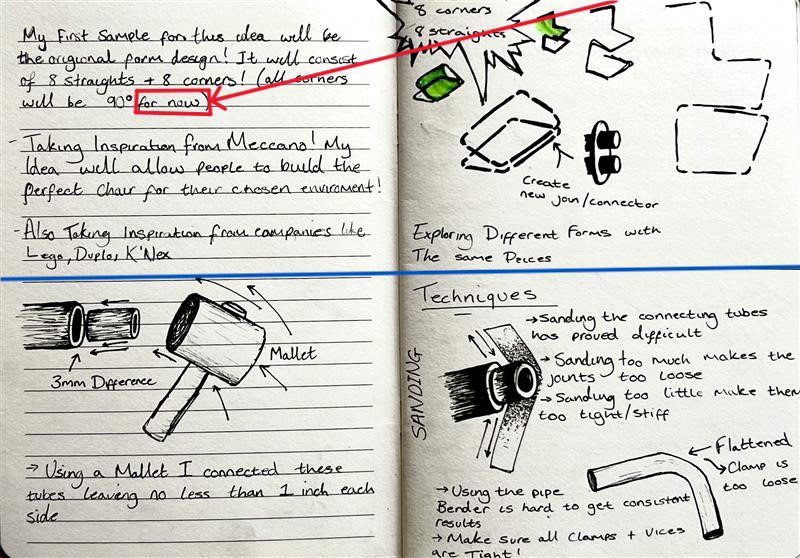 My First Sample for this idea will be
the origional form design! It will consist
of 8 straights + 8 corners! (all corners
will be 90° for now)
- Taking Inspiration from Meccano! My
Idea will allow people to build the
perfect Chair for their chosen enviroment!
- Also Taking Inspiration from companies like
Lego, Duplo, K'Nex
8 corners
8 straights
Create
new join/connector
Exploring Different Forms with
The same Peices
3mm Difference
Mallet
→ Using a Mallet I connected these
tubes leaving no less than 1 inch each
side
Techniques
SANDING
→ Sanding the connecting tubes
has proved difficult
→ Sanding too much makes the
joints too loose
→ Sanding too little make them
too tight/stiff
Flattened
Clamp is
too loose
→ Using the pipe
Bender is hard to get consistent
results
→ Make sure all Clamps + Vices
are Tight!